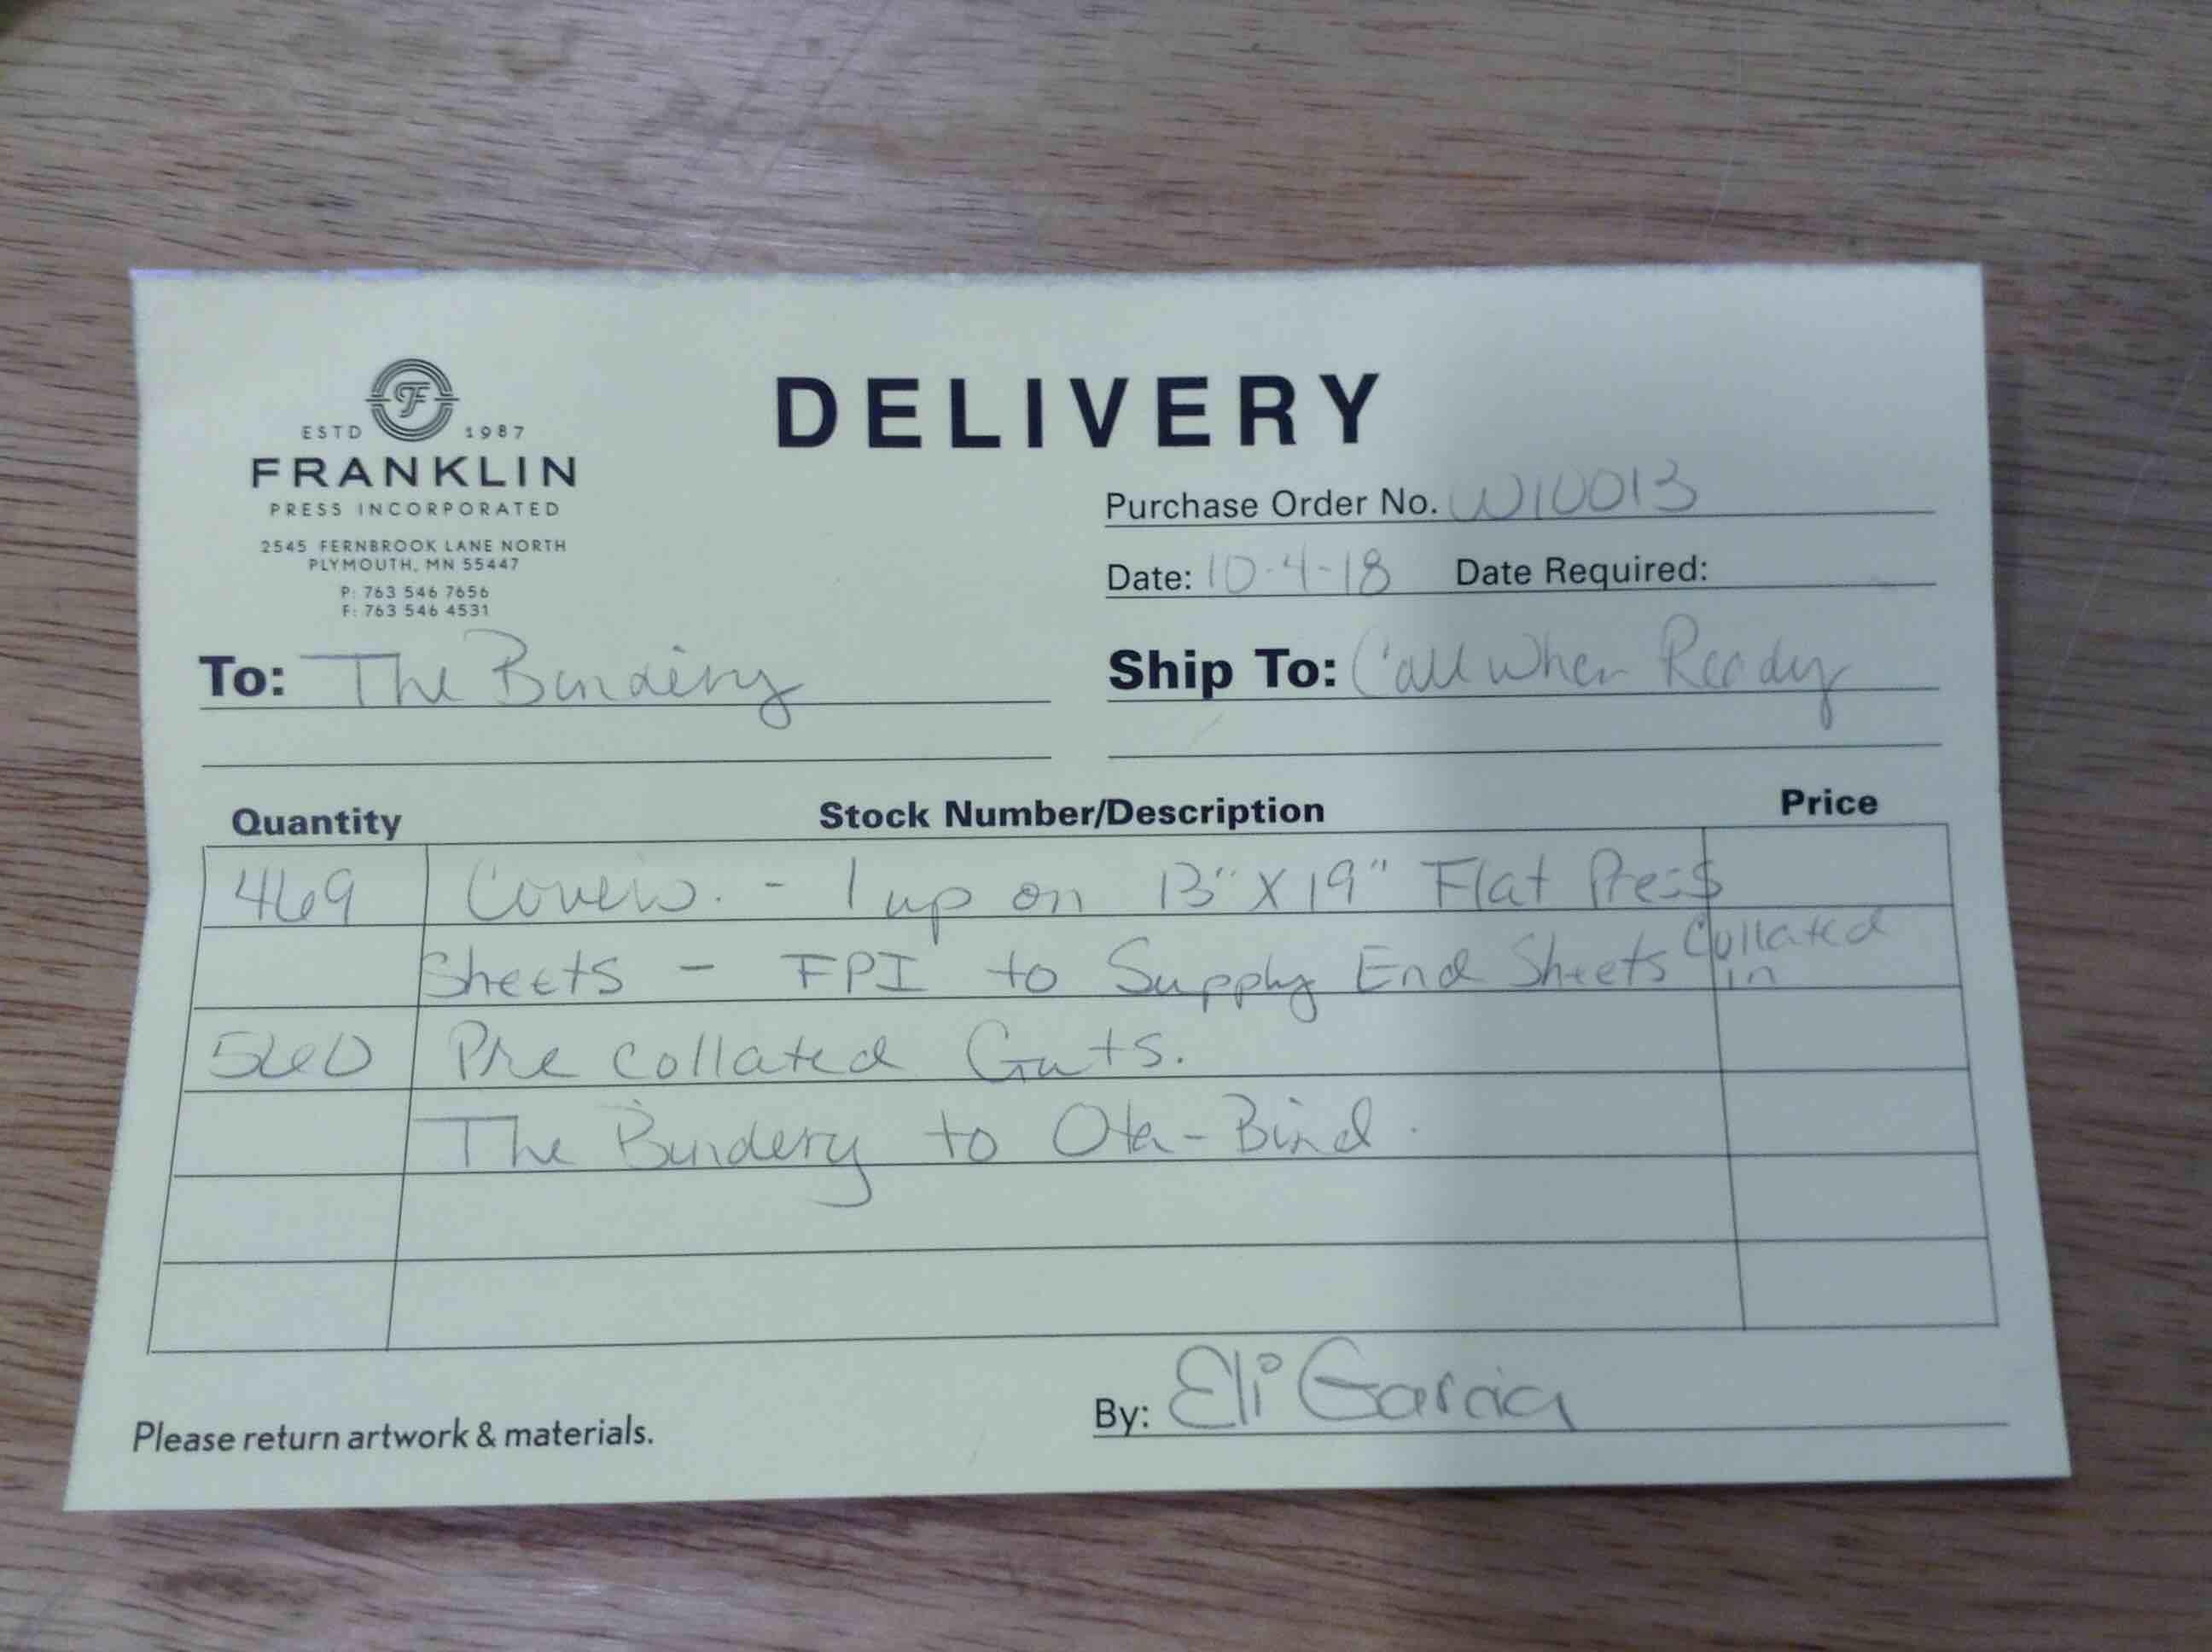 ESTD 1987
FRANKLIN
PRESS INCORPORATED
2545 FERNBROOK LANE NORTH
PLYMOUTH, MN 55447
P: 763 546 7656
F: 763 546 4531
DELIVERY
Purchase Order No. W10013
Date: 10-4-18 Date Required:
To: The Bindery
Ship To: Call When Ready
Quantity Stock Number/Description Price
469 Covers. - 1 up on 13" X 19" Flat Press
Sheets - FPI to Supply End Sheets Collated in
560 Pre collated Guts.
The Bindery to Ota-Bind.
Please return artwork & materials.
By: Eli Garcia